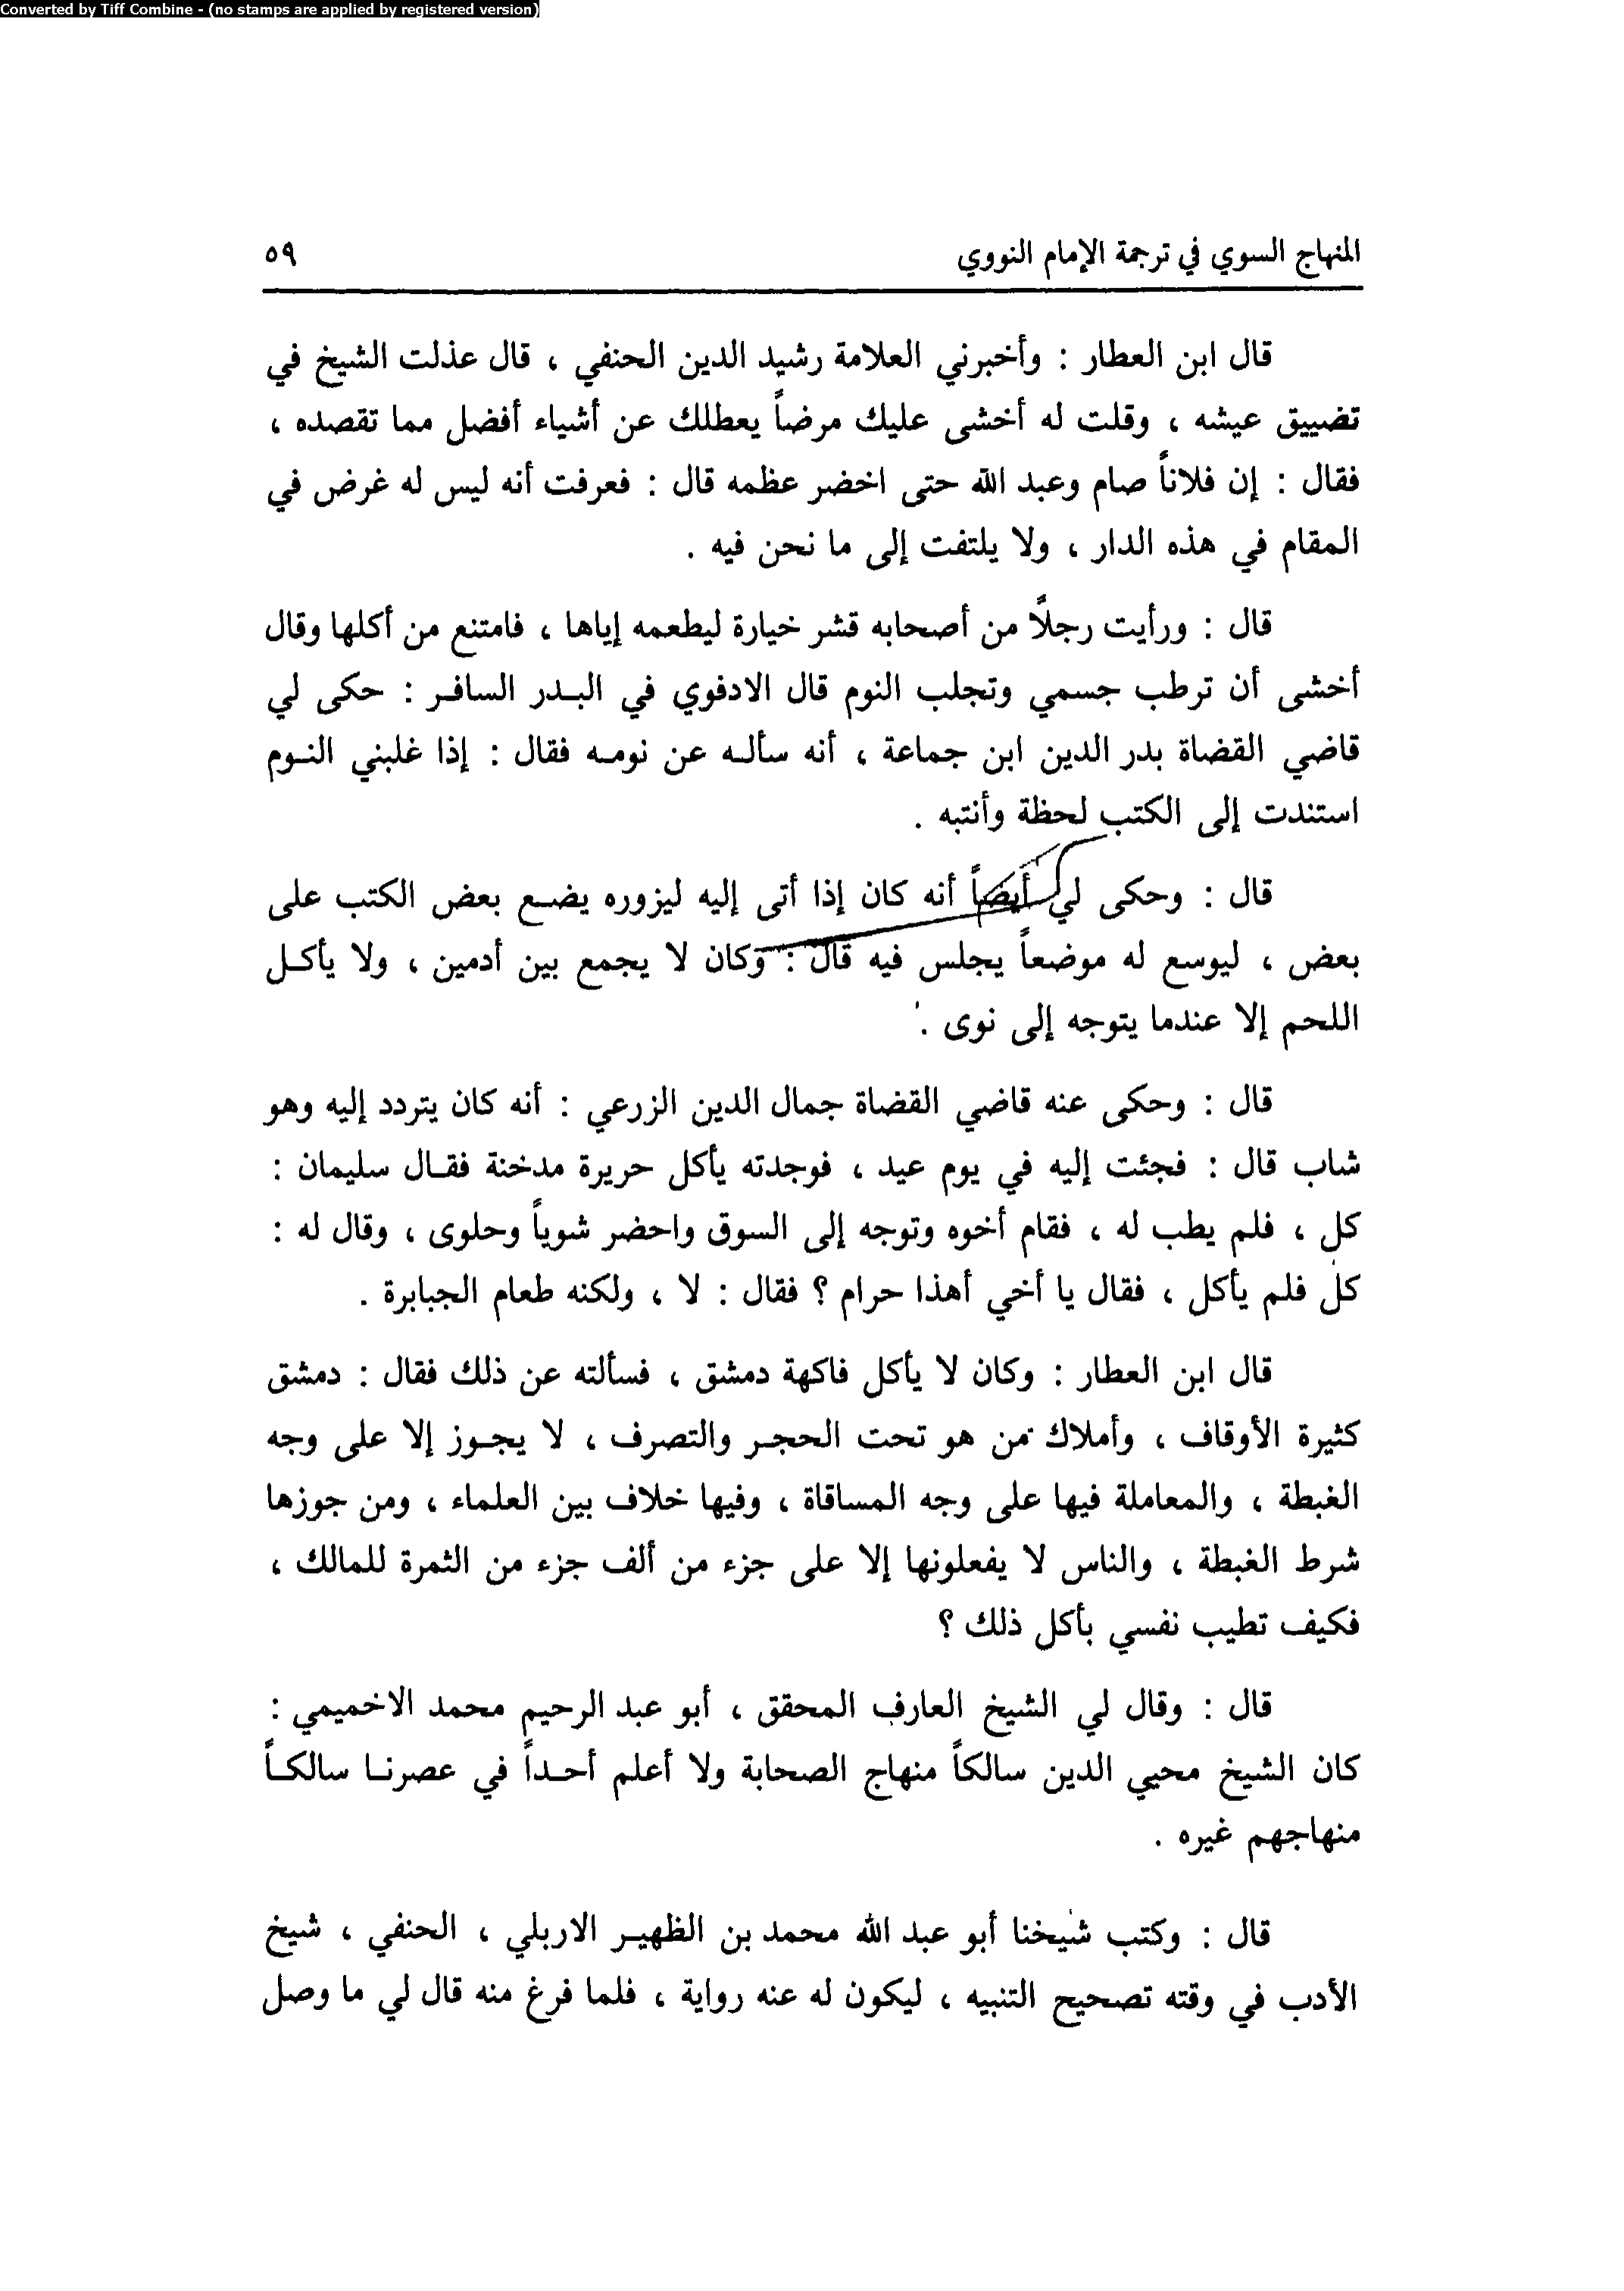 Converted by Tiff Combine - (no stamps are applied by registered version)
المنهاج السوي في ترجمة الإمام النووي ٥٩
قال ابن العطار : وأخبرني العلامة رشيد الدين الحنفي ، قال عذلت الشيخ في
تضييق عيشه ، وقلت له أخشى عليك مرضاً يعطلك عن أشياء أفضل مما تقصده ،
فقال : إن فلاناً صام وعبد الله حتى اخضر عظمه قال : فعرفت أنه ليس له غرض في
المقام في هذه الدار ، ولا يلتفت إلى ما نحن فيه .
قال : ورأيت رجلاً من أصحابه قشر خيارة ليطعمه إياها ، فامتنع من أكلها وقال
أخشى أن ترطب جسمي وتجلب النوم قال الادفوي في البدر السافر : حكى لي
قاضي القضاة بدر الدين ابن جماعة ، أنه سأله عن نومه فقال : إذا غلبني النوم
استندت إلى الكتب لحظة وأنتبه .
قال : وحكى لي أيضاً أنه كان إذا أتى إليه ليزوره يضع بعض الكتب على
بعض ، ليوسع له موضعاً يجلس فيه قال : وكان لا يجمع بين أدمين ، ولا يأكل
اللحم إلا عندما يتوجه إلى نوى .
قال : وحكى عنه قاضي القضاة جمال الدين الزرعي : أنه كان يتردد إليه وهو
شاب قال : فجئت إليه في يوم عيد ، فوجدته يأكل حريرة مدخنة فقال سليمان :
كل ، فلم يطب له ، فقام أخوه وتوجه إلى السوق واحضر شوياً وحلوى ، وقال له :
كل فلم يأكل ، فقال يا أخي أهذا حرام ؟ فقال : لا ، ولكنه طعام الجبابرة .
قال ابن العطار : وكان لا يأكل فاكهة دمشق ، فسألته عن ذلك فقال : دمشق
كثيرة الأوقاف ، وأملاك من هو تحت الحجر والتصرف ، لا يجوز إلا على وجه
الغبطة ، والمعاملة فيها على وجه المساقاة ، وفيها خلاف بين العلماء ، ومن جوزها
شرط الغبطة ، والناس لا يفعلونها إلا على جزء من ألف جزء من الثمرة للمالك ،
فكيف تطيب نفسي بأكل ذلك ؟
قال : وقال لي الشيخ العارف المحقق ، أبو عبد الرحيم محمد الاخميمي :
كان الشيخ محيي الدين سالكاً منهاج الصحابة ولا أعلم أحداً في عصرنا سالكاً
منهاجهم غيره .
قال : وكتب شيخنا أبو عبد الله محمد بن الظهير الاربلي ، الحنفي ، شيخ
الأدب في وقته تصحيح التنبيه ، ليكون له عنه رواية ، فلما فرغ منه قال لي ما وصل